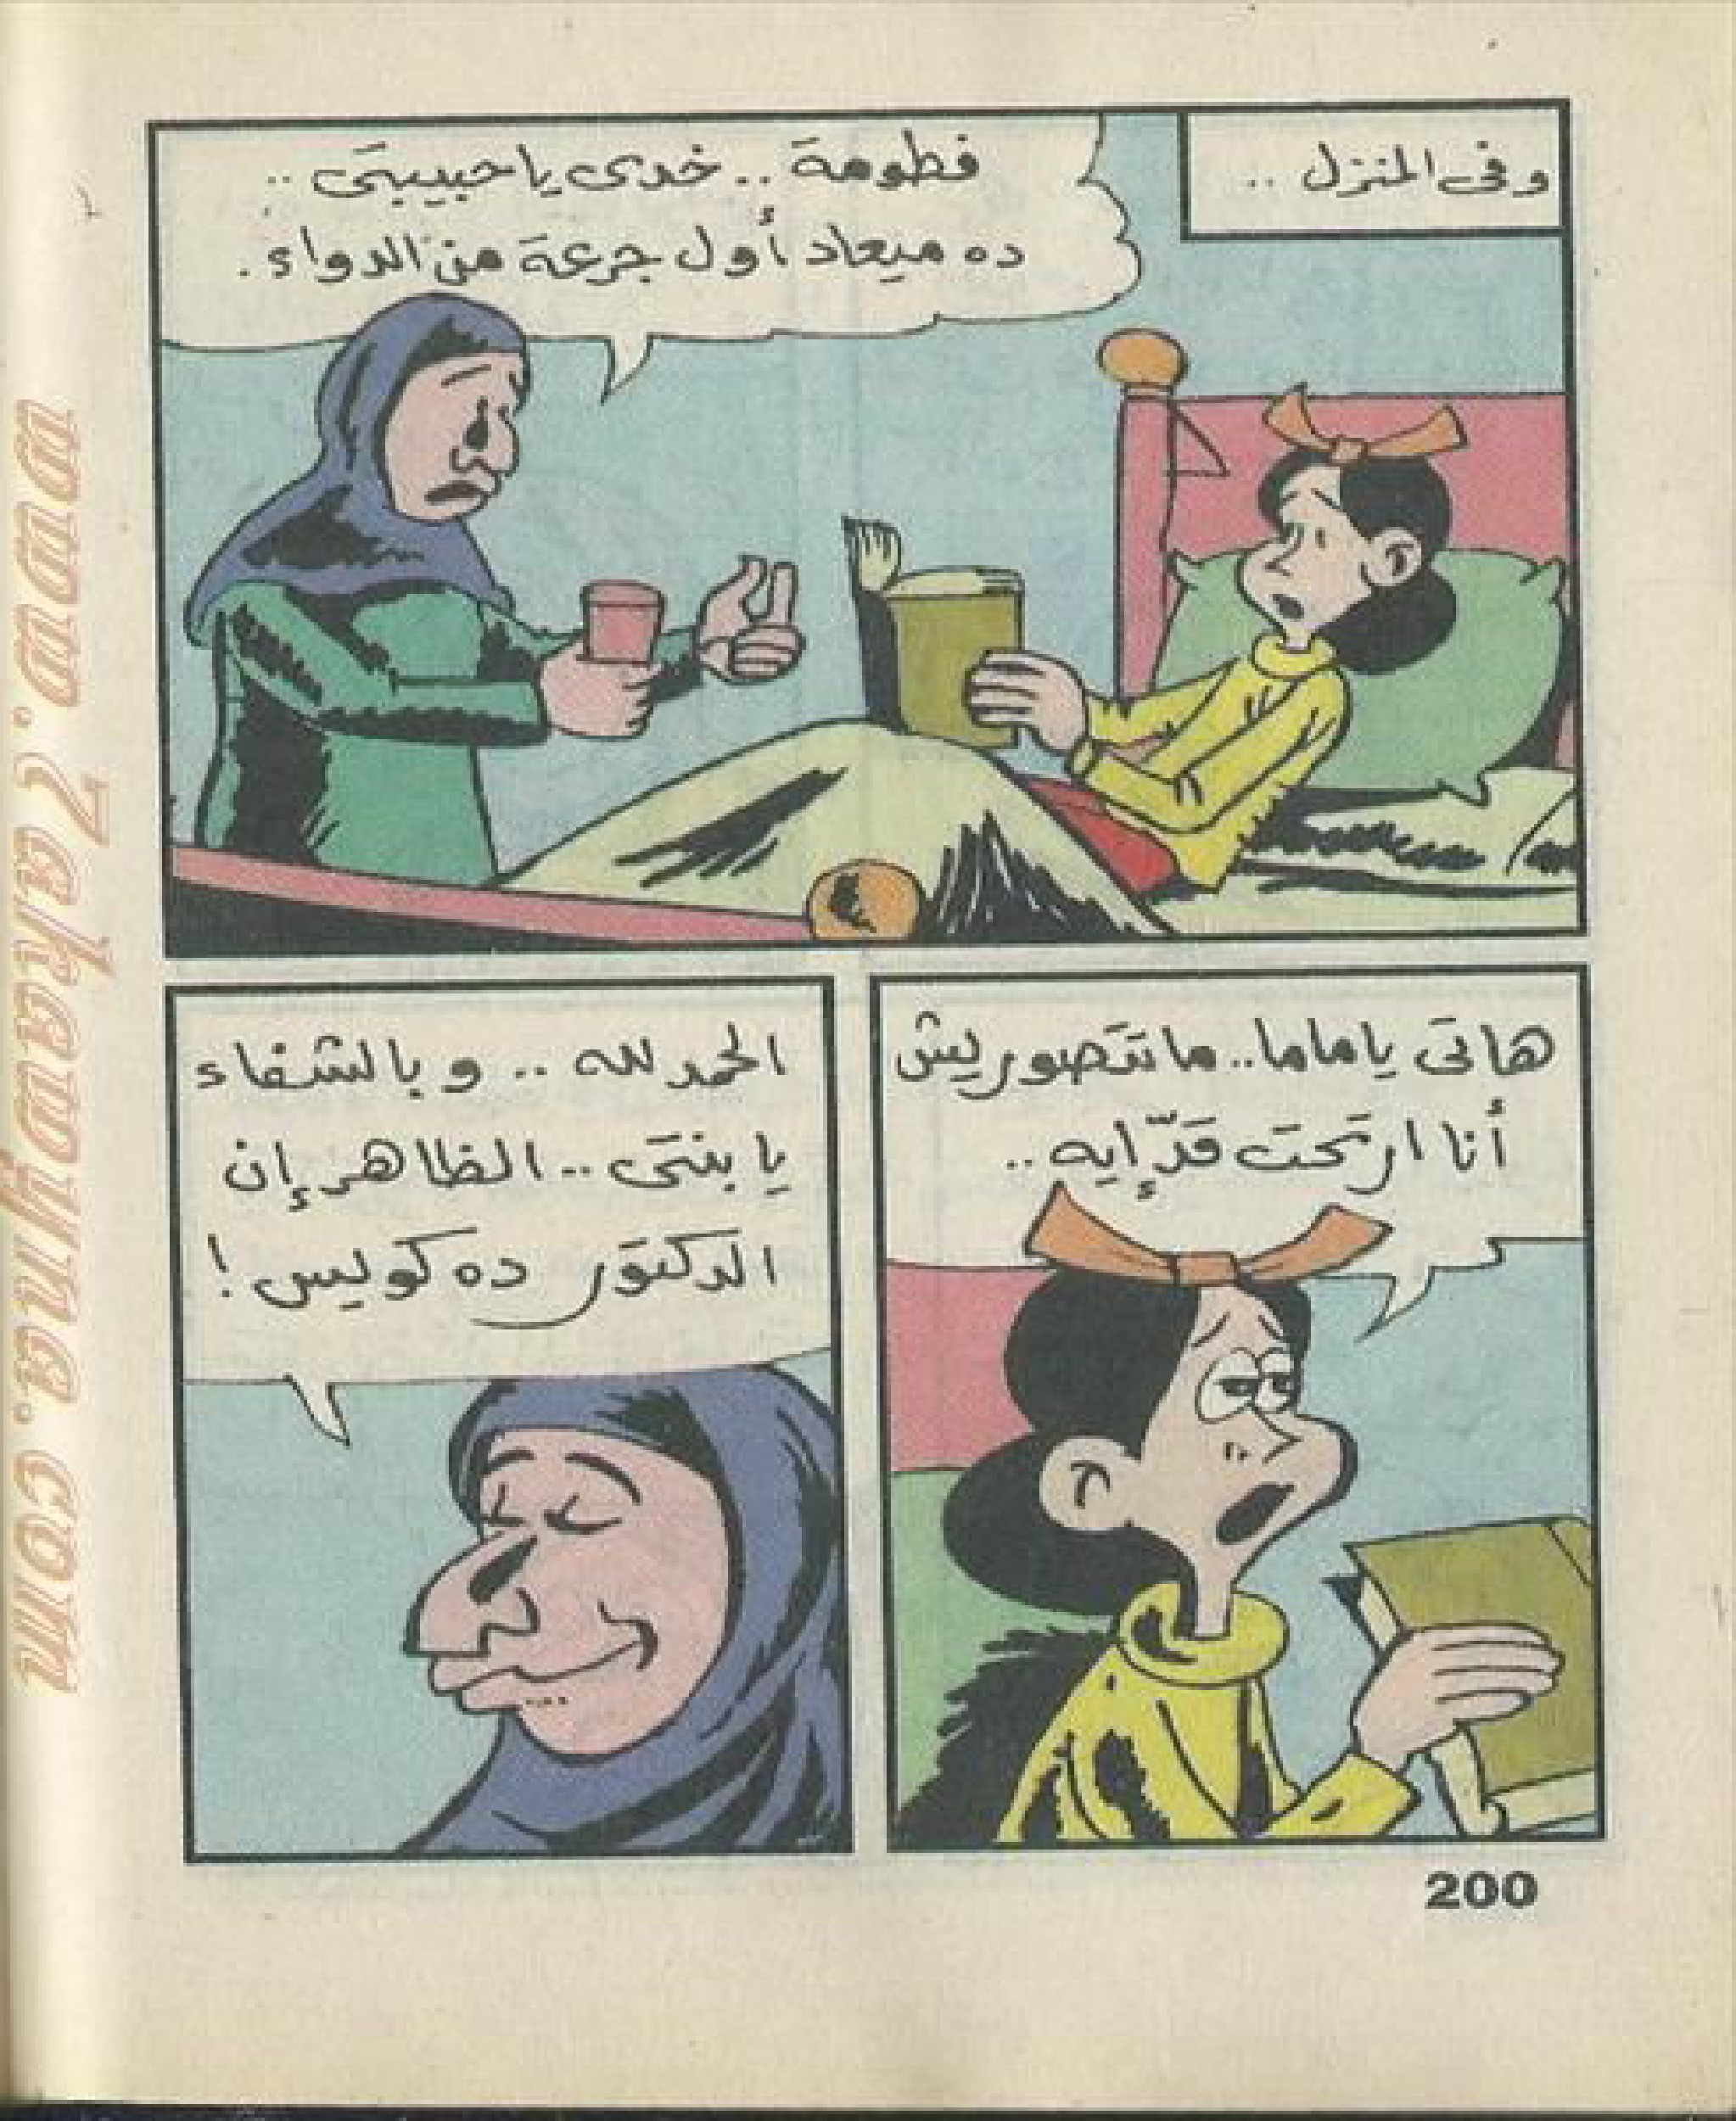 وفى المنزل ..
فطومة .. خدى يا حبيبتى ..
ده ميعاد أول جرعة من الدواء .
هاتى ياماما.. ماتتصوريش
أنا ارتحت قدّ إيه ..
الحمد لله .. و بالشفاء
يا بنتى .. الظاهر إن
الدكتور ده كويس !
200
www.liilas.com